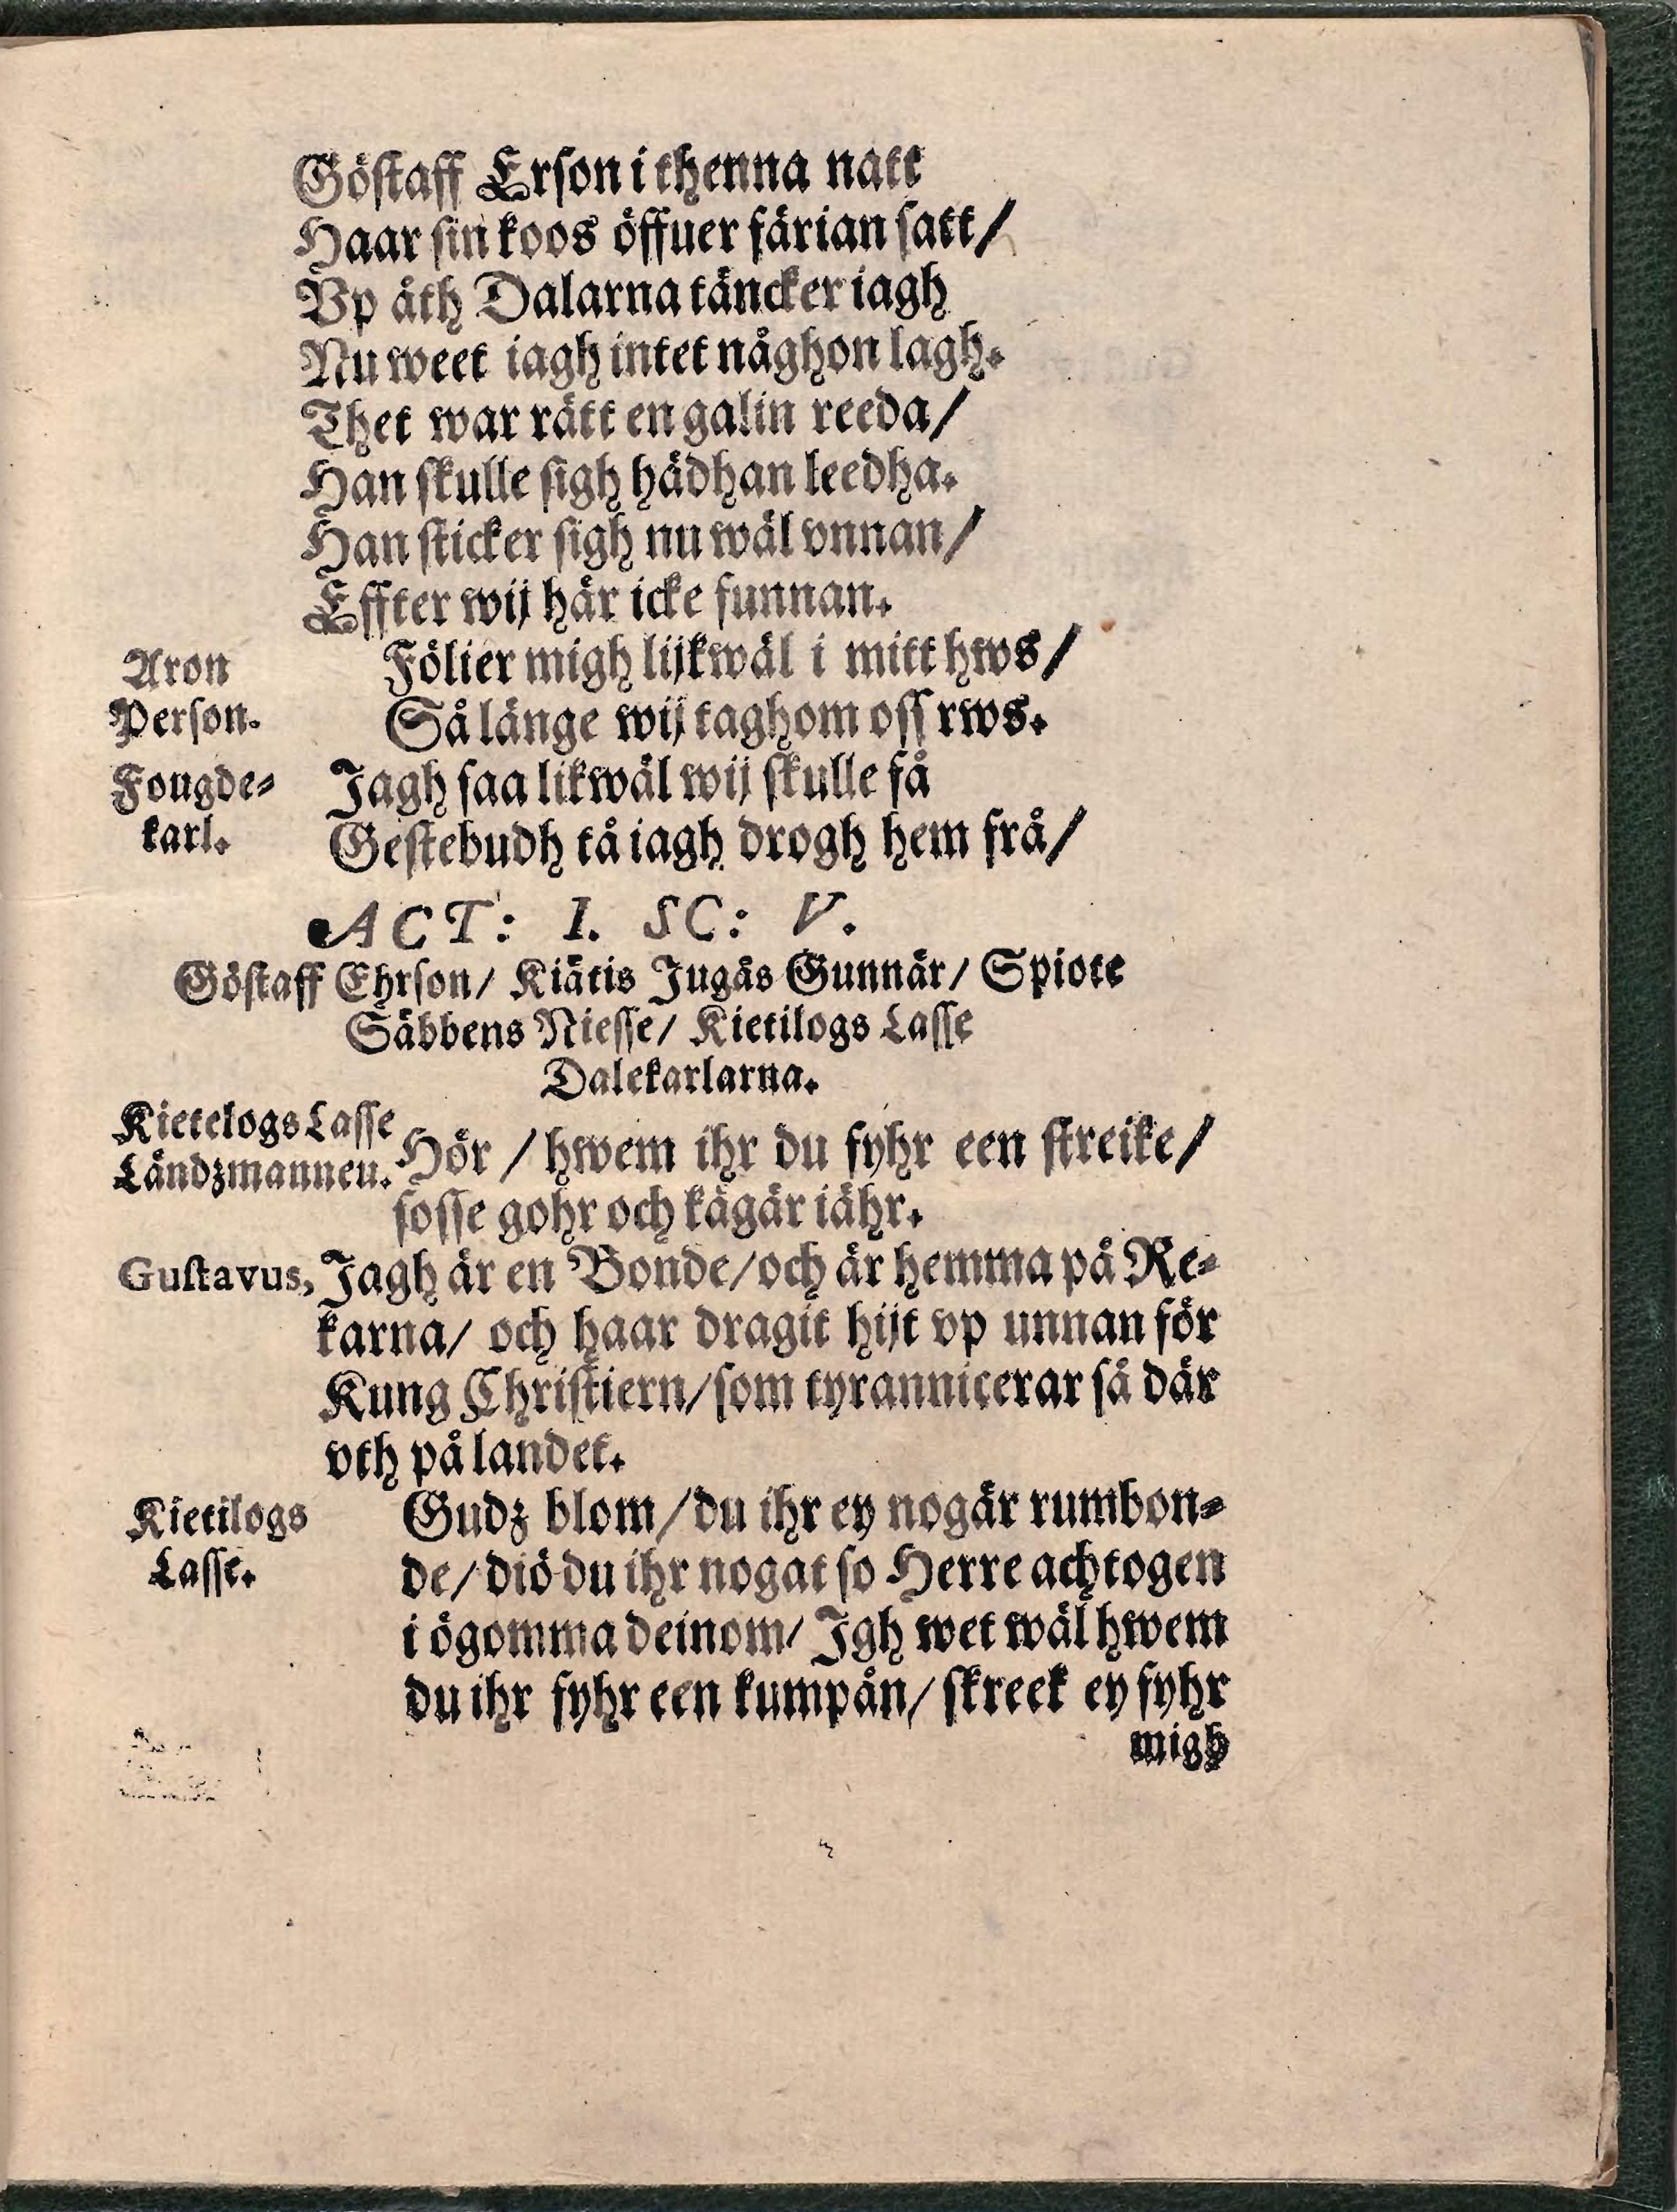 Göstaff Erson i thenna natt
Haar sin koos öffuer färian satt/
Vp åth Dalarna täncker iagh
Nu weet iagh intet någhon lagh.
Thet war rätt en galin reeda/
Han skulle sigh hädhan leedha.
Han sticker sigh nu wäl vnnan/
Effter wij här icke funnan.
Aron Fölier migh lijkwäl i mitt hws/
Person. Så länge wij taghom oss rws.
Fougde- Jagh saa likwäl wij skulle få
karl. Gestebudh tå iagh drogh hem frå/
ACT: I. SC: V.
Göstaff Ehrson/ Kiätis Jugås Gunnär/ Spiote
Säbbens Niesse/ Kietilogs Lasse
Dalekarlarna.
Kietelogs Lasse
Ländzmannen. Hör / hwem ihr du fyhr een streike/
sosse gohr och kågår iähr.
Gustavus, Jagh är en Bonde/ och är hemma på Re-
karna/ och haar dragit hijt vp unnan för
Kung Christiern/ som tyrannicerar så där
vth på landet.
Kietilogs Gudz blom/ du ihr ey nogär rumbon-
Lasse. de/ diö du ihr nogat so Herre achtogen
i ögomma deinom/ Jgh wet wäl hwem
du ihr fyhr een kumpån/ skreek ey fyhr
migh